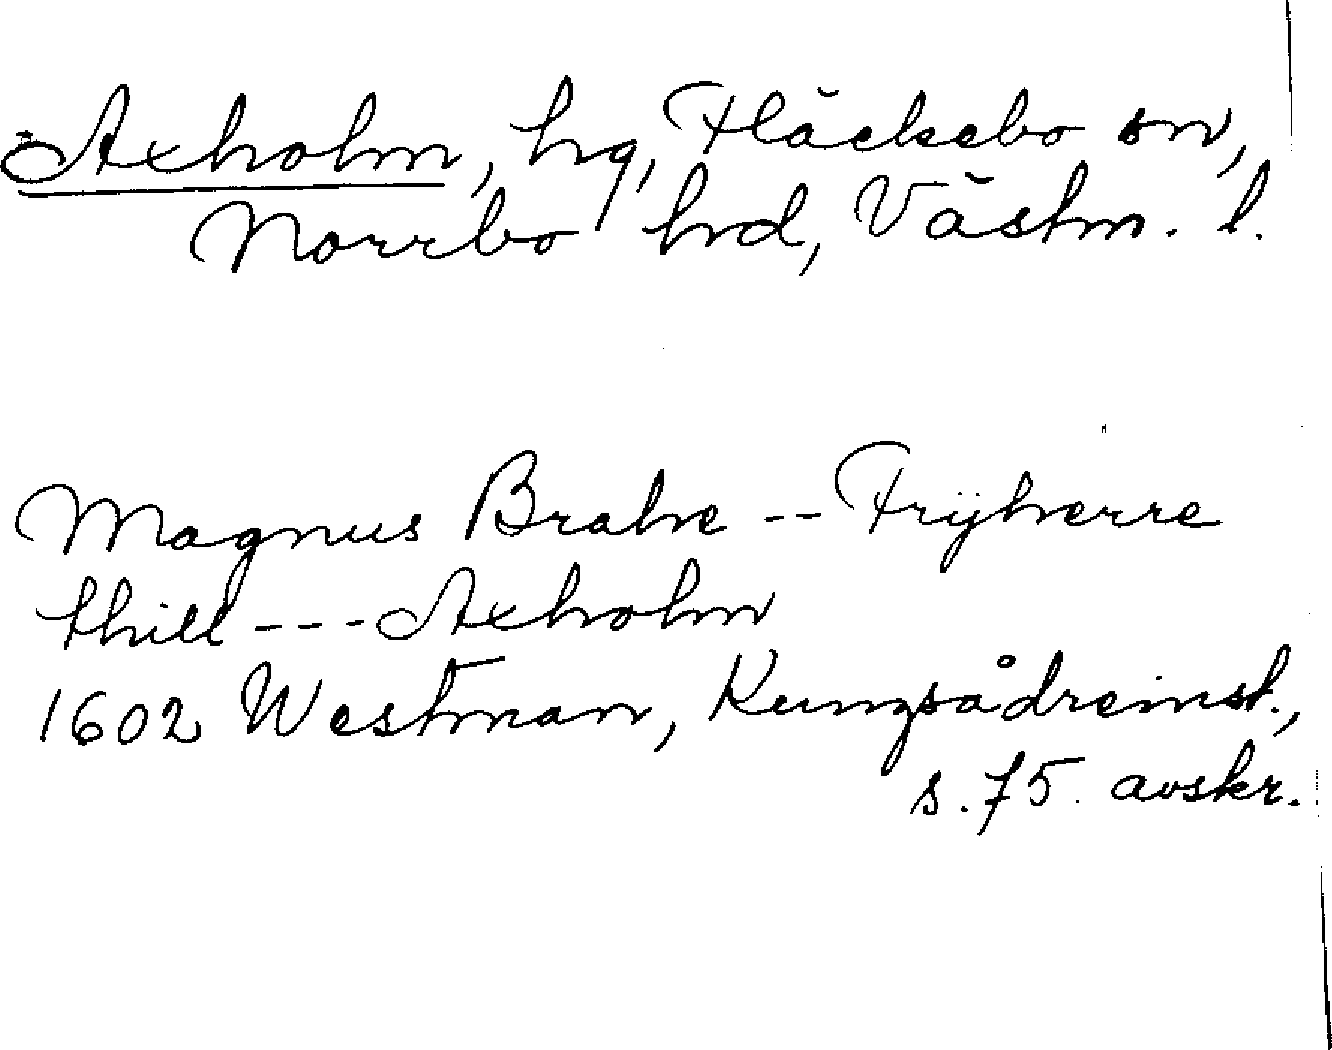 Axholm, hg, Fläckebo sn,
Norrbo hrd, Västm. l.
Magnus Brahe -- Frijherre
thill --- Axholm
1602 Westman, Kungsådreinst.,
s. 75. avskr.